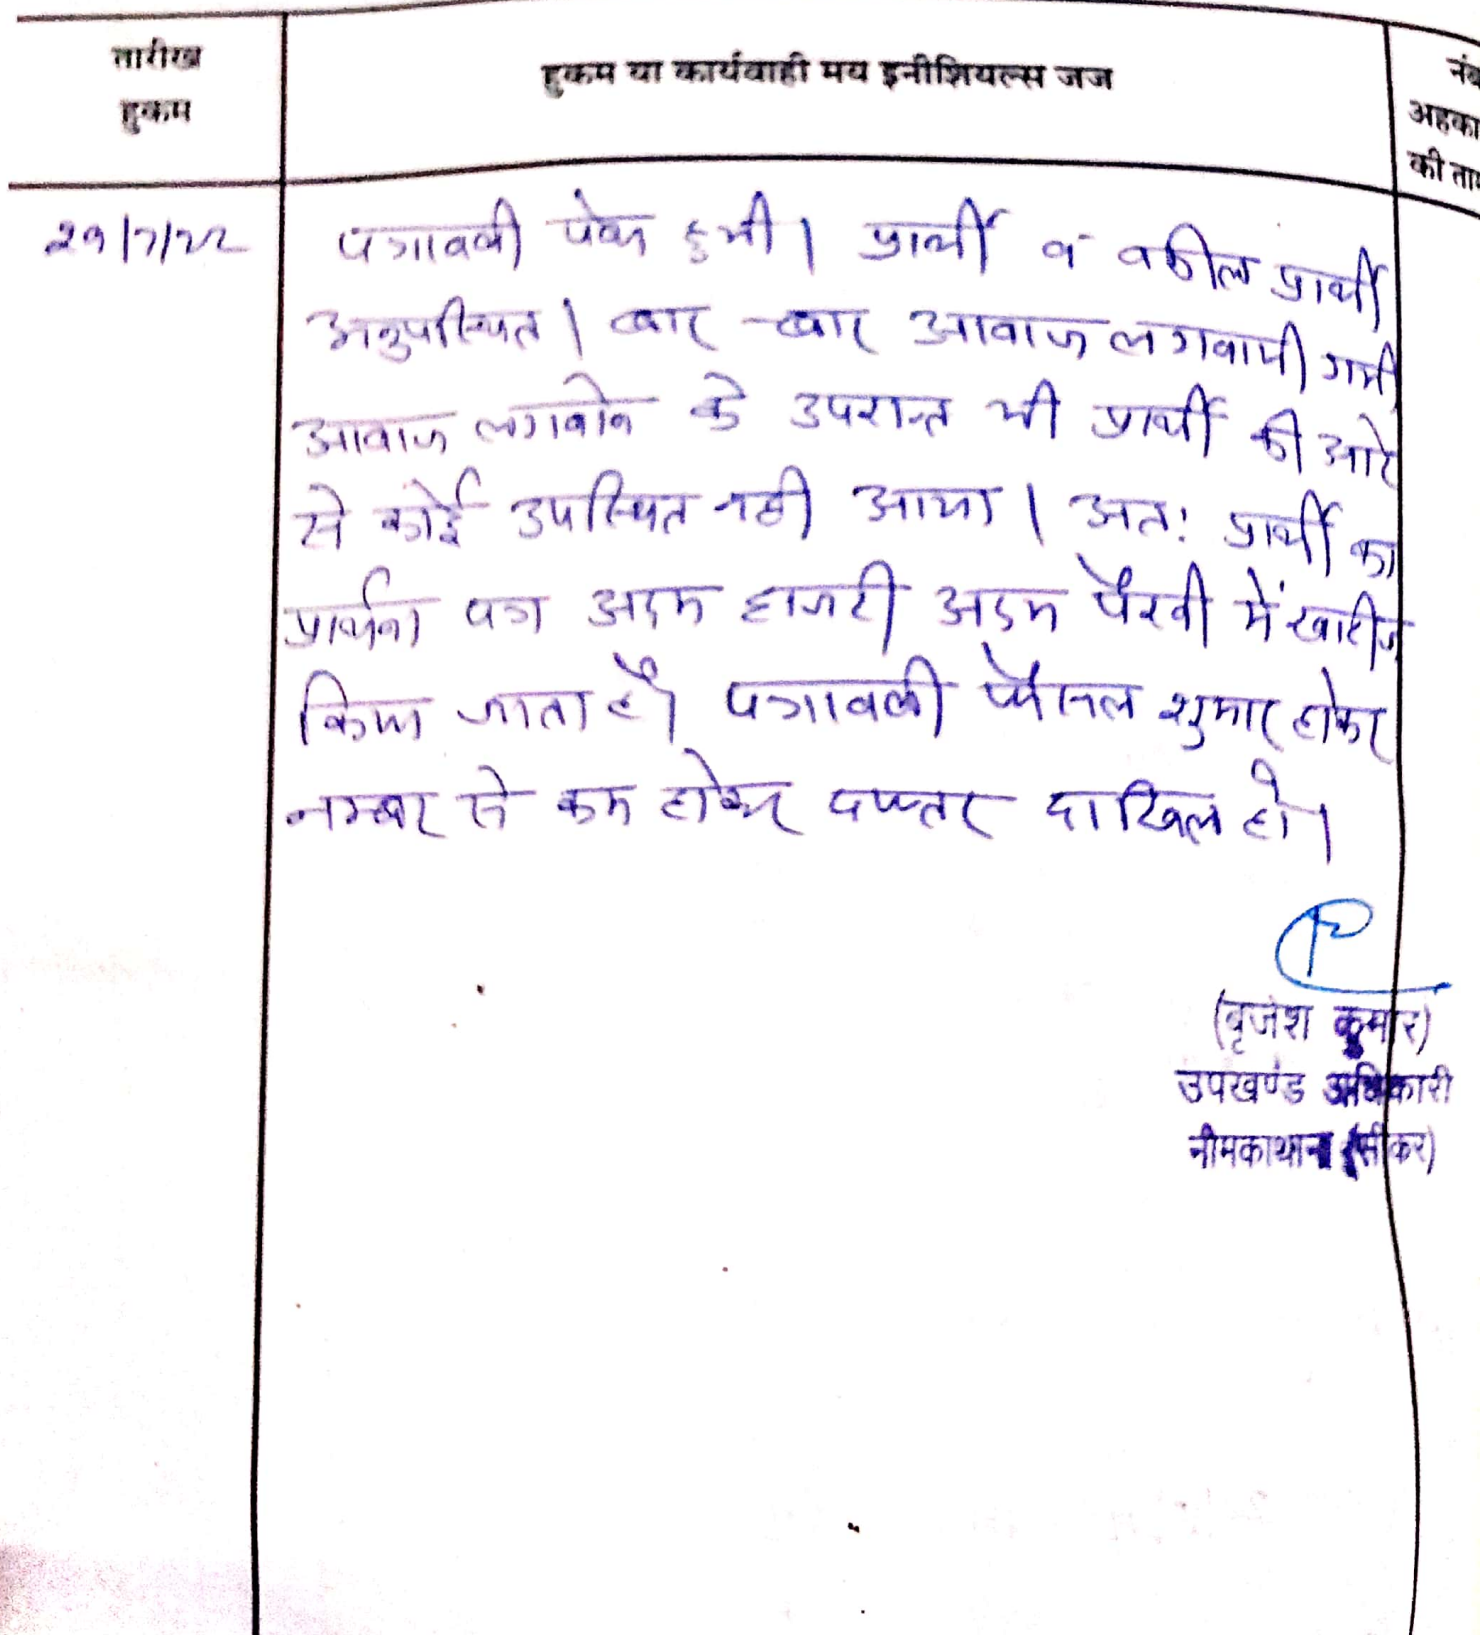 तारीख
हुकम
हुकम या कार्यवाही मय इनीशियल्स जज
नंब
अहका
की ताम
29/7/22
पत्रावली पेश हुयी। प्रार्थी व वकील प्रार्थी
अनुपस्थित। बार-बार आवाज लगवायी गयी
आवाज लगवाने के उपरान्त भी प्रार्थी की ओर
से कोई उपस्थित नही आया। अतः प्रार्थी का
प्रार्थना पत्र अदम हाजरी अदम पैरवी में खारीज
किया जाता है। पत्रावली फैसल शुमार होकर
नम्बर से कम होकर दफ्तर दाखिल हो।
(बृजेश कुमार)
उपखण्ड अधिकारी
नीमकाथाना (सीकर)